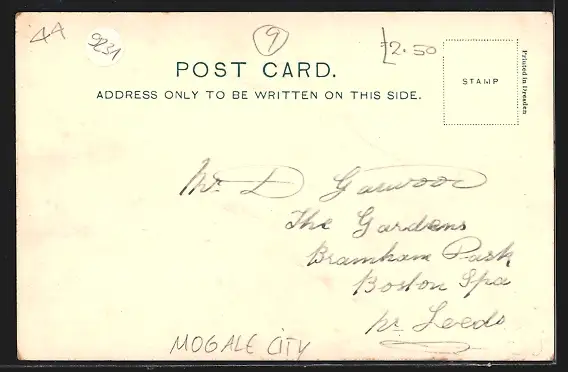 44
9231
9
£2.50
POST CARD.
ADDRESS ONLY TO BE WRITTEN ON THIS SIDE.
STAMP
Printed in Dresden
Mr. D Garwood
The Gardens
Bramham Park
Boston Spa
nr. Leeds
MOGALE CITY